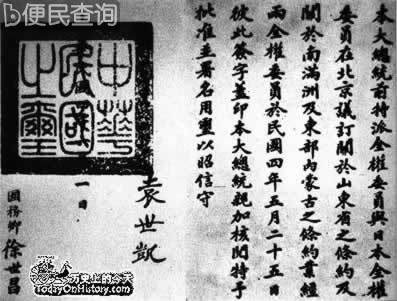 便民查询
本大總統前特派全權委員與日本全權
委員在北京議訂關於山東省之條約及
關於南滿洲及東部內蒙古之條約業經
兩全權委員於民國四年五月二十五日
彼此簽字蓋印本大總統親加核閱特予
批准並署名用璽以昭信守
袁世凱
中華
民國
之璽
一日
國務卿 徐世昌
历史上的今天
TodayOnHistory.com